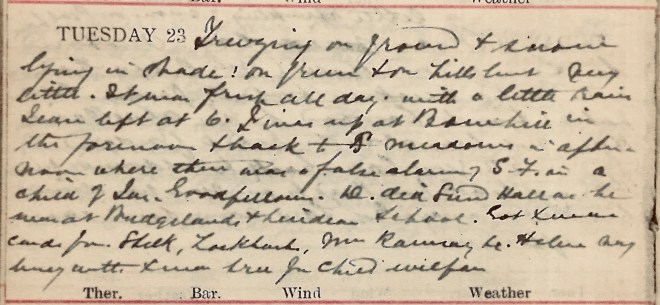 Bar. Wind Weather
TUESDAY 23 Freezing on ground & snow
lying in shade! on green & on hills but very
little. It was fresh all day. with a little rain
Jean left at 6. I was up at in
the forenoon & back to meadows in after
noon where there was a false alarm of S.F. in a
child of Jas. Goodfellow. W. did Sund Hall as he
was at & School. Got Xmas
cards fm. Shelk, Lockhart, Mrs Ramsay &c. Helen very
busy with Xmas tree for Child welfare
Ther. Bar. Wind Weather